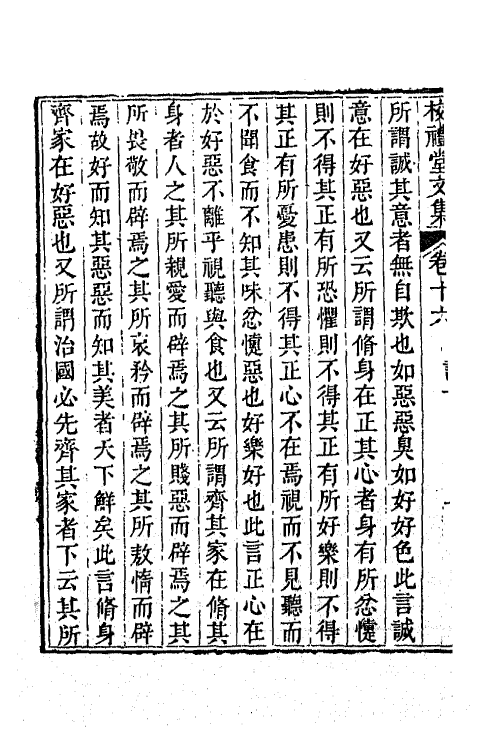 校禮堂文集 卷十六
所謂誠其意者無自欺也如惡惡臭如好好色此言誠
意在好惡也又云所謂脩身在正其心者身有所忿懥
則不得其正有所恐懼則不得其正有所好樂則不得
其正有所憂患則不得其正心不在焉視而不見聽而
不聞食而不知其味忿懥惡也好樂好也此言正心在
於好惡不離乎視聽與食也又云所謂齊其家在脩其
身者人之其所親愛而辟焉之其所賤惡而辟焉之其
所畏敬而辟焉之其所哀矜而辟焉之其所敖惰而辟
焉故好而知其惡惡而知其美者天下鮮矣此言脩身
齊家在好惡也又所謂治國必先齊其家者下云其所